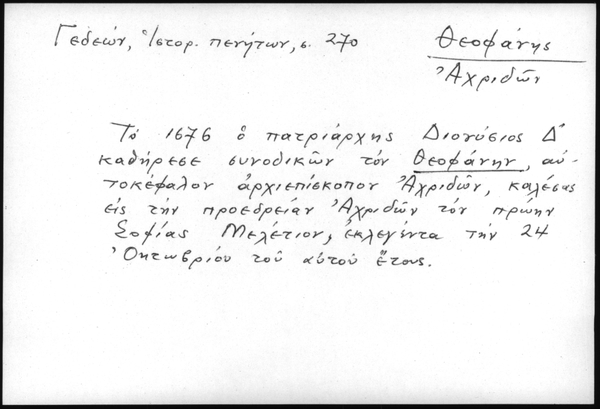 Γεδεών, Ἱστορ. πενήτων, σ. 270
Θεοφάνης
Ἀχριδῶν
Τὸ 1676 ὁ πατριάρχης Διονύσιος Δ΄
καθήρεσε συνοδικῶν τὸν Θεοφάνην, αὐ-
τοκέφαλον ἀρχιεπίσκοπον Ἀχριδῶν, καλέσας
εἰς τὴν προεδρείαν Ἀχριδῶν τὸν πρώην
Σοφίας Μελέτιον, ἐκλεγέντα τὴν 24
Ὀκτωβρίου τοῦ αὐτοῦ ἔτους.